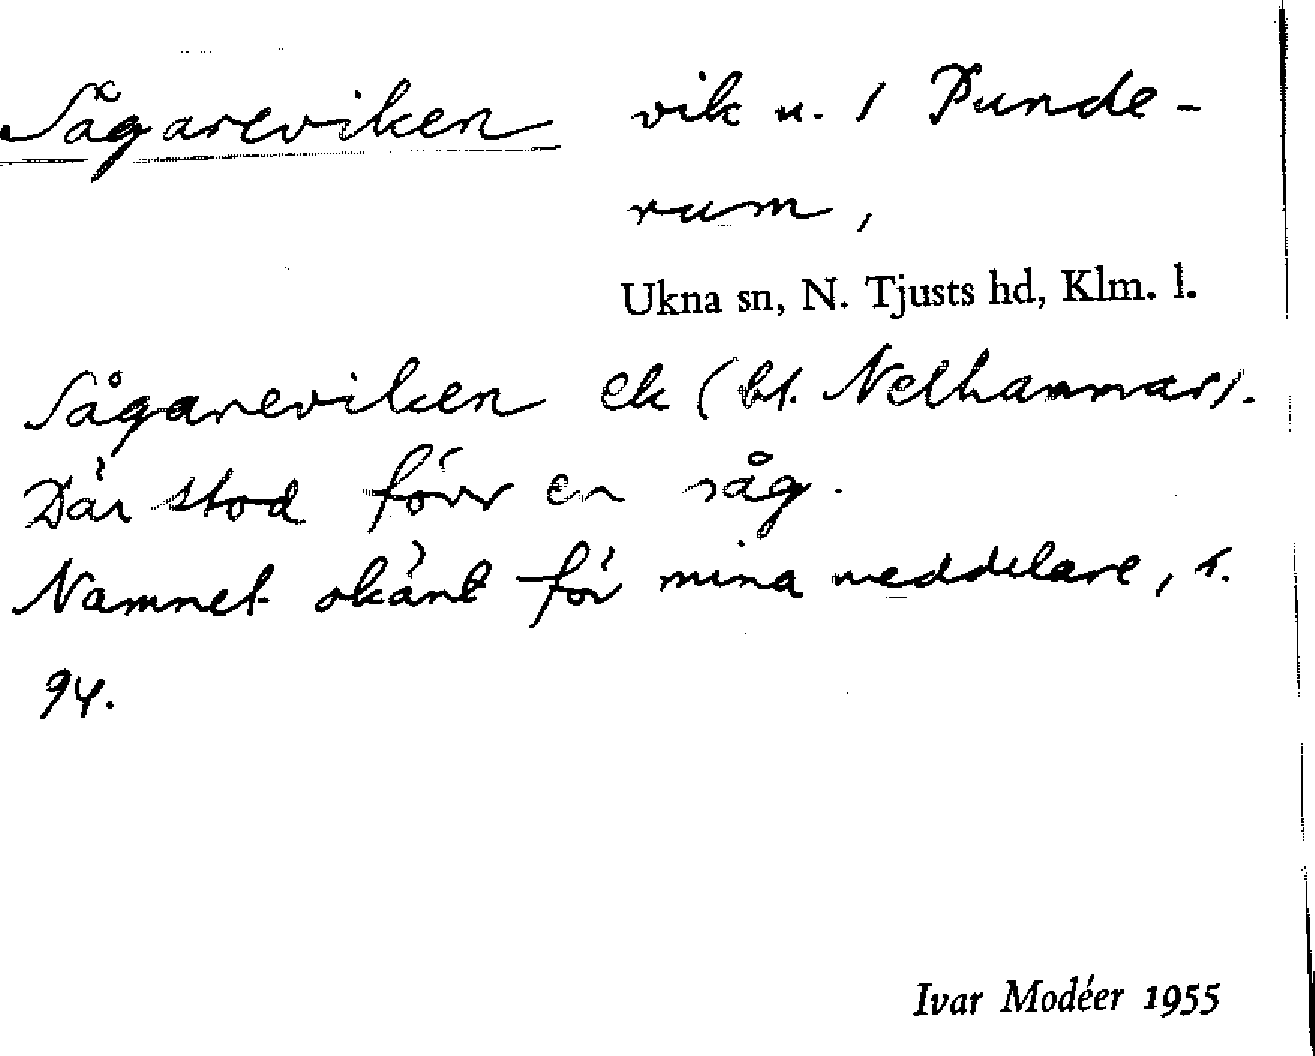 Sågareviken vik u. / Punde-
rum,
Ukna sn, N. Tjusts hd, Klm. l.
Sågareviken ek (bl. Nelhammar).
Där stod förr en såg.
Namnet okänt för mina meddelare, s.
94.
Ivar Modéer 1955